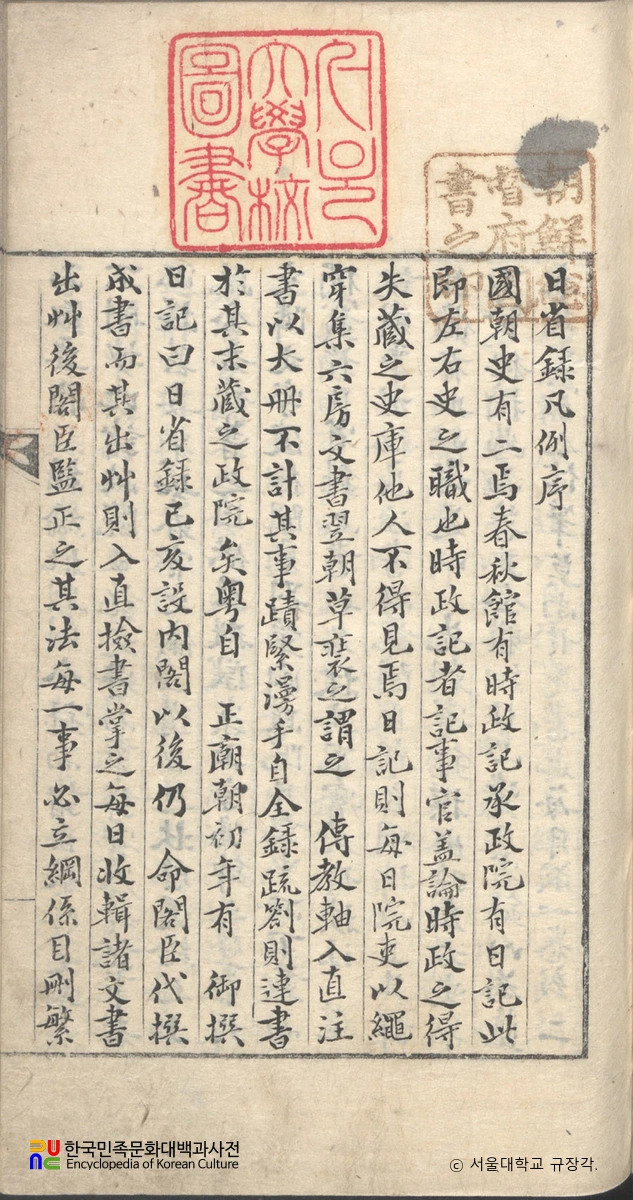 서울
大學校
圖書
朝鮮總
督府圖
書之印
日省錄凡例序
國朝史有二焉春秋館有時政記承政院有日記此
即左右史之職也時政記者記事官盖論時政之得
失藏之史庫他人不得見焉日記則每日院吏以繩
穿集六房文書翌朝草之謂之 傳教軸入直注
書以大冊不計其事蹟緊漫手自全錄疏劄則連書
於其末藏之政院矣粤自 正廟朝初年有 御撰
日記曰日省錄己亥設內閣以後仍 命閣臣代撰
成書而其出艸則入直撿書掌之每日收輯諸文書
出艸後閣臣監正之其法每一事必立綱係目刪繁
한국민족문화대백과사전
Encyclopedia of Korean Culture
ⓒ 서울대학교 규장각.